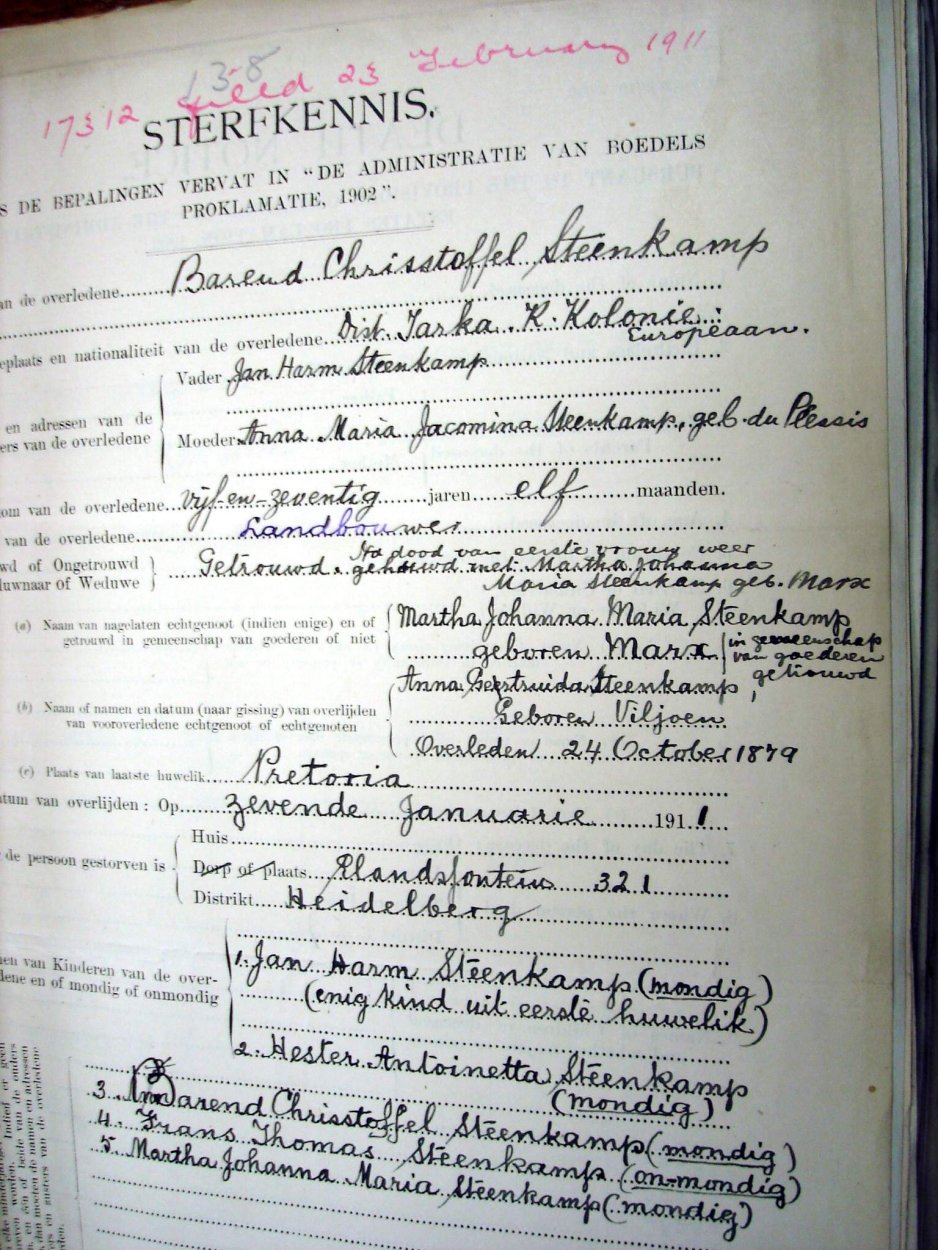 138
17312 filed 23 February 1911
STERFKENNIS.
S DE BEPALINGEN VERVAT IN "DE ADMINISTRATIE VAN BOEDELS
PROKLAMATIE, 1902".
an de overledene Barend Chrisstoffel Steenkamp
eplaats en nationaliteit van de overledene Dist. Tarka K. Kolonie:
Europeaan.
en adressen van de
ers van de overledene
Vader Jan Harm Steenkamp
Moeder Anna Maria Jacomina Steenkamp, geb. du Plessis
om van de overledene vijf-en-zeventig jaren elf maanden.
van de overledene Landbouwer
wd of Ongetrouwd
duwnaar of Weduwe
Getrouwd. Na dood van eerste vrouw weer
gehuwd met Martha Johanna
Maria Steenkamp geb. Marx
(a) Naam van nagelaten echtgenoot (indien enige) en of
getrouwd in gemeenschap van goederen of niet
Martha Johanna Maria Steenkamp
geboren Marx
in gemeenschap
van goederen
getrouwd
(b) Naam of namen en datum (naar gissing) van overlijden
van vooroverledene echtgenoot of echtgenoten
Anna Geertruida Steenkamp,
Geboren Viljoen
Overleden 24 October 1879
(c) Plaats van laatste huwelik Pretoria
atum van overlijden: Op zevende Januarie 1911
de persoon gestorven is
Huis
Dorp of plaats Elandsfontein 321
Distrikt Heidelberg
en van Kinderen van de over-
dene en of mondig of onmondig
1. Jan Harm Steenkamp (mondig)
(enig kind uit eerste huwelik)
2. Hester Antoinetta Steenkamp
(mondig)
3. Barend Chrisstoffel Steenkamp (mondig)
4. Frans Thomas Steenkamp (on-mondig)
5. Martha Johanna Maria Steenkamp (mondig)